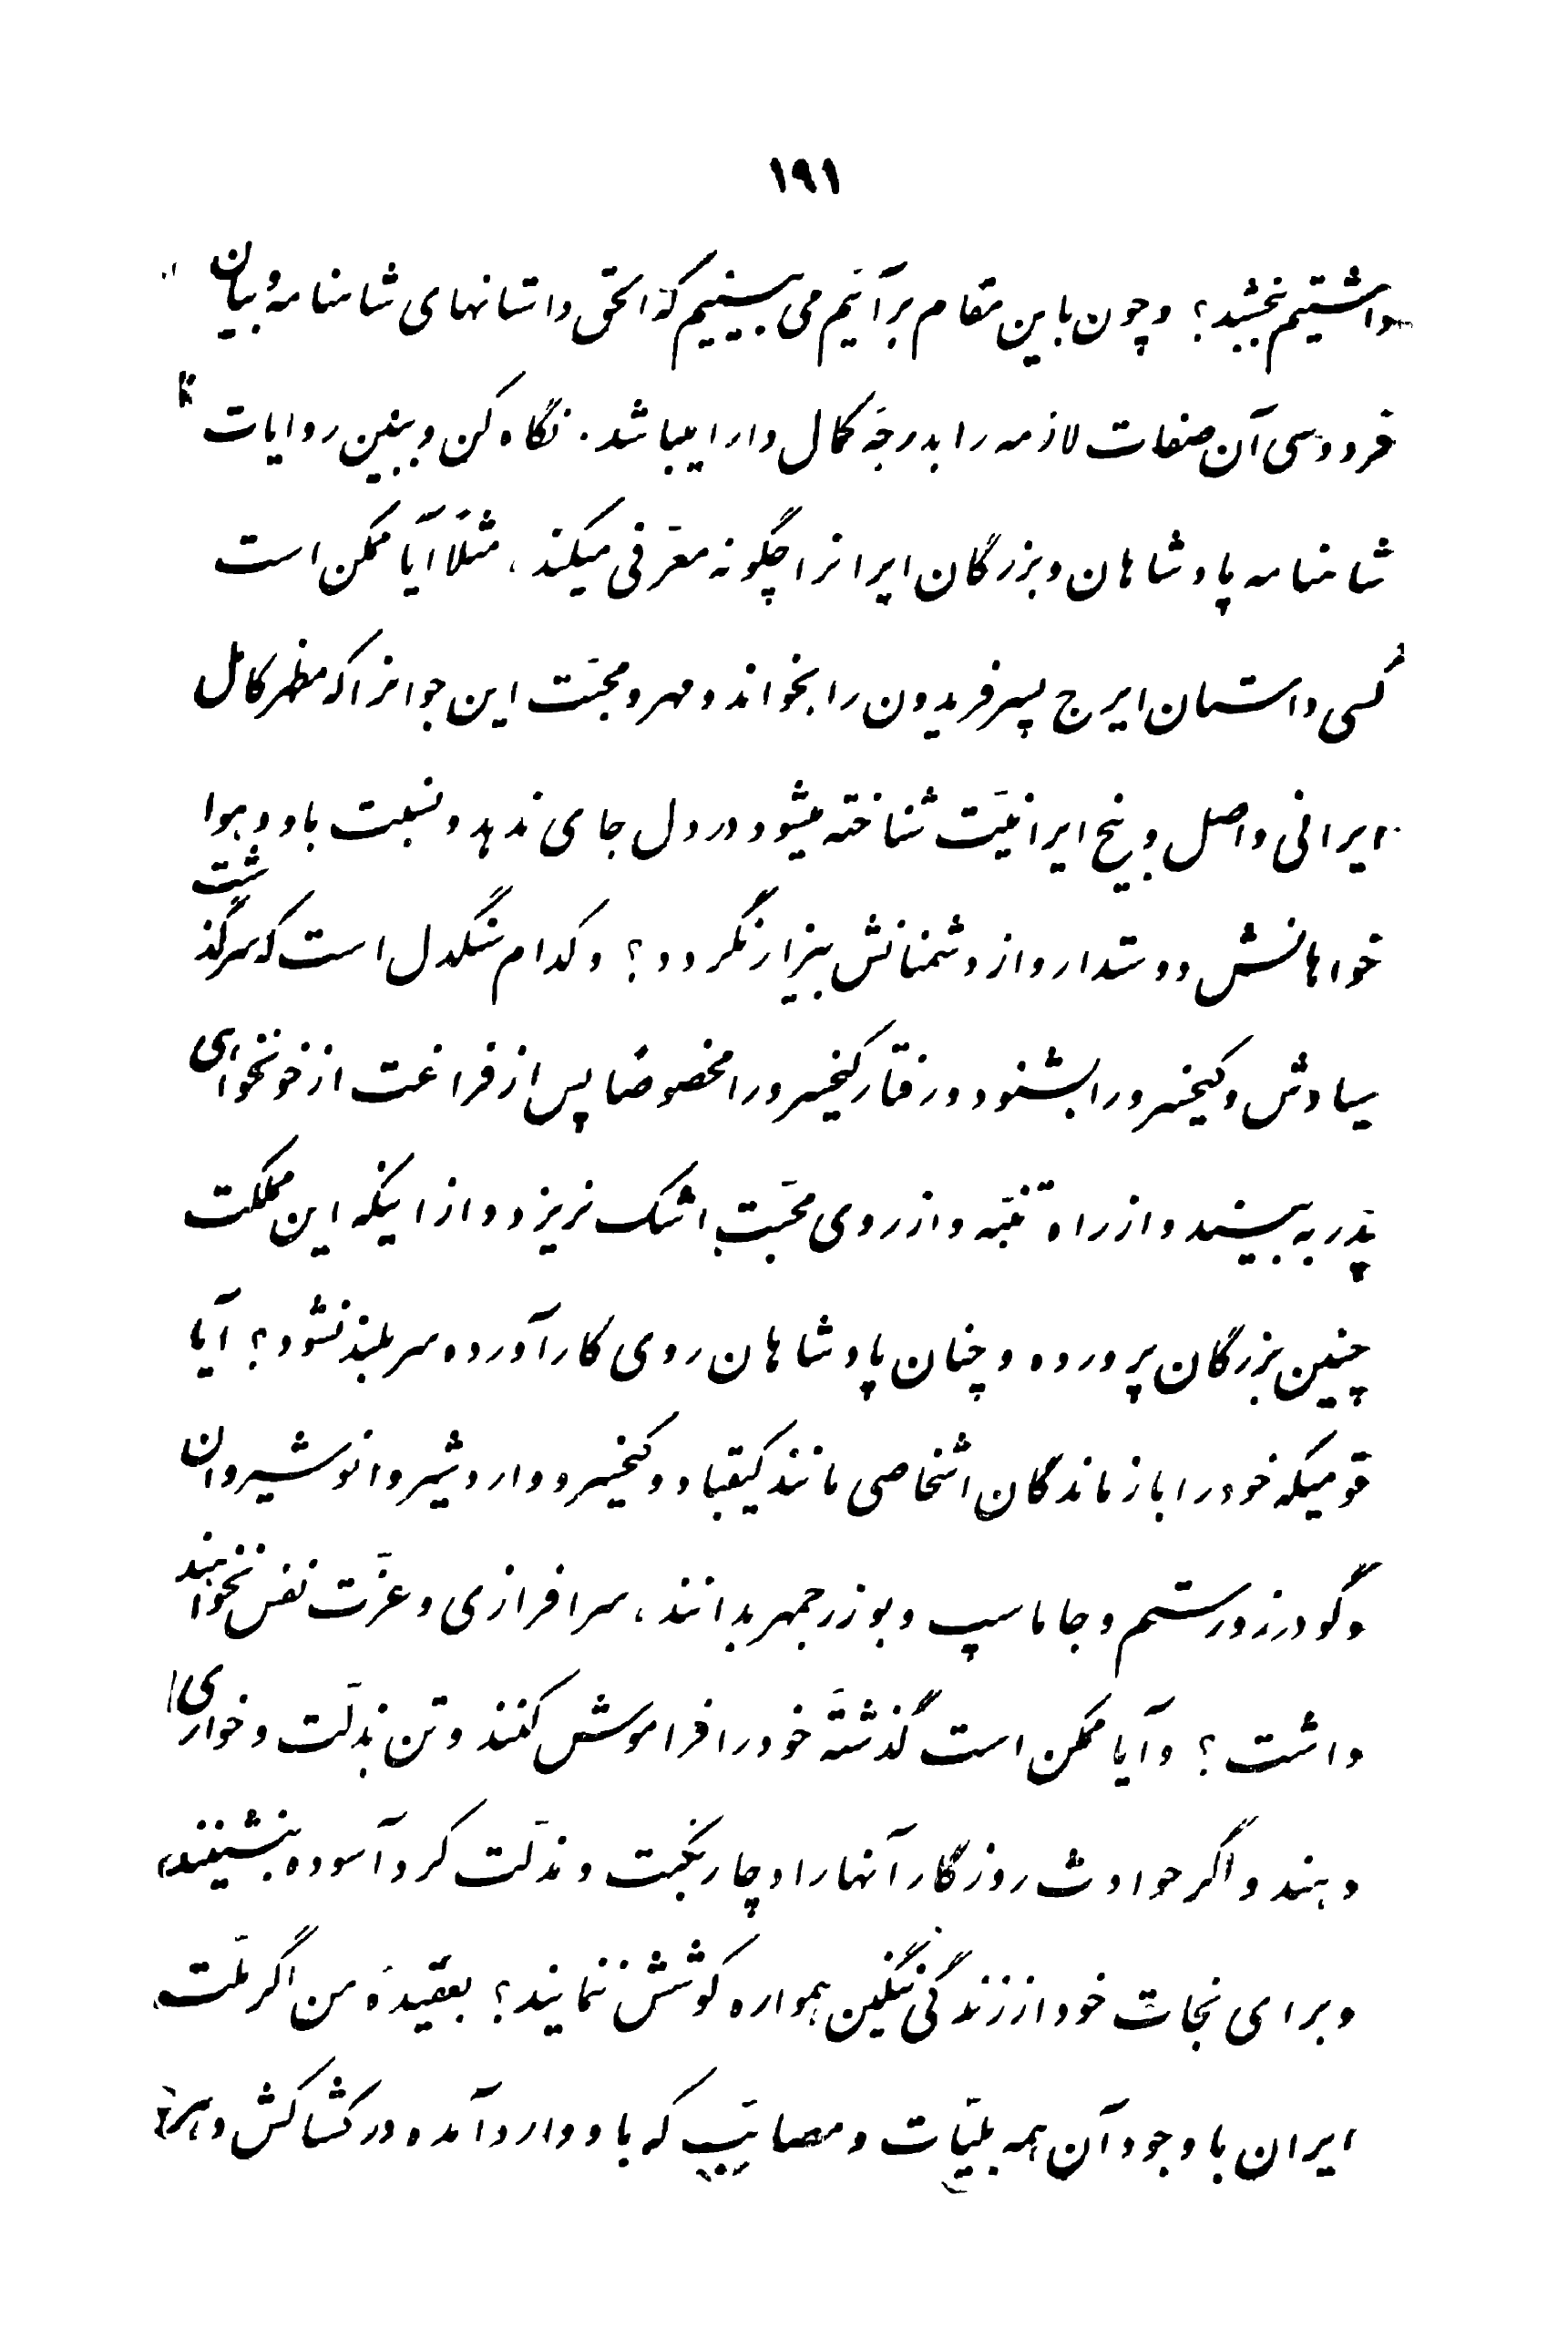 ۱۹۱
داشتیم بخشید؟ و چون باین مقام برآئیم می بینیم که الحق داستانهای شاهنامه و بیان
فردوسی آن صفات لازمه را بدرجهٔ کمال دارا میباشد. نگاه کن و ببین روایات
شاهنامه پادشاهان و بزرگان ایرانرا چگونه معرّفی میکند، مثلاً آیا ممکن است
کسی داستان ایرج پسر فریدون را بخواند و مهر و محبّت این جوانرا که مظهر کامل
ایرانی و اصل و بیخ ایرانیّت شناخته میشود در دل جای ندهد و نسبت باو و هوا
خواهانش دوستدار و از دشمنانش بیزار نگردد؟ و کدام سنگدل است که سرگذشت
سیاوش و کیخسرو را بشنود و رفتار کیخسرو را مخصوصاً پس از فراغت از خونخواهی
پدر به بیند و از راه تنبّه و از روی محبّت اشک نریزد و از اینکه این مملکت
چنین بزرگان پرورده و چنان پادشاهان روی کار آورده سربلند نشود؟ آیا
قومیکه خود را بازماندگان اشخاصی مانند کیقباد و کیخسرو و اردشیر و انوشیروان
و گودرز و رستم و جاماسپ و بوزرجمهر بدانند، سرافرازی و عزّت نفس نخواهند
داشت؟ و آیا ممکن است گذشتهٔ خود را فراموش کنند و تن بذلّت و خواری
دهند و اگر حوادث روزگار آنها را دچار نکبت و مذلّت کرد آسوده بنشینند،
و برای نجات خود از زندگی ننگین همواره کوشش ننمایند؟ بعقیدهٔ من اگر ملّت
ایران با وجود آن همه بلیّات و مصایب که باو وارد آمده در کشاکش دهر